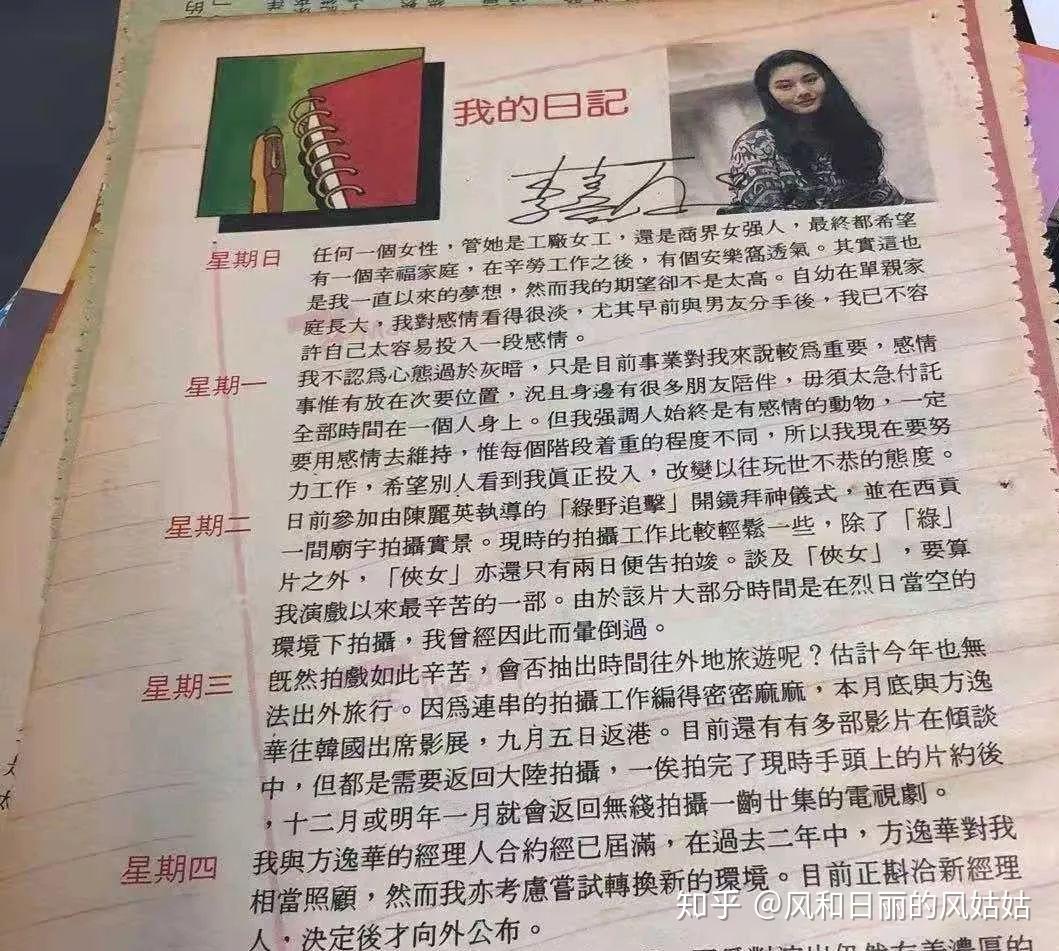 我的日記
星期日
任何一個女性，管她是工廠女工，還是商界女强人，最終都希望
有一個幸福家庭，在辛勞工作之後，有個安樂窩透氣。其實這也
是我一直以來的夢想，然而我的期望卻不是太高。自幼在單親家
庭長大，我對感情看得很淡，尤其早前與男友分手後，我已不容
許自己太容易投入一段感情。
星期一
我不認爲心態過於灰暗，只是目前事業對我來說較爲重要，感情
事惟有放在次要位置，況且身邊有很多朋友陪伴，毋須太急付託
全部時間在一個人身上。但我强調人始終是有感情的動物，一定
要用感情去維持，惟每個階段着重的程度不同，所以我現在要努
力工作，希望別人看到我眞正投入，改變以往玩世不恭的態度。
星期二
日前參加由陳麗英執導的「綠野追擊」開鏡拜神儀式，並在西貢
一間廟宇拍攝實景。現時的拍攝工作比較輕鬆一些，除了「綠」
片之外，「俠女」亦還只有兩日便告拍竣。談及「俠女」，要算
我演戲以來最辛苦的一部。由於該片大部分時間是在烈日當空的
環境下拍攝，我曾經因此而暈倒過。
星期三
旣然拍戲如此辛苦，會否抽出時間往外地旅遊呢？估計今年也無
法出外旅行。因爲連串的拍攝工作編得密密麻麻，本月底與方逸
華往韓國出席影展，九月五日返港。目前還有有多部影片在傾談
中，但都是需要返回大陸拍攝，一俟拍完了現時手頭上的片約後
，十二月或明年一月就會返回無綫拍攝一齣廿集的電視劇。
星期四
我與方逸華的經理人合約經已屆滿，在過去二年中，方逸華對我
相當照顧，然而我亦考慮嘗試轉換新的環境。目前正斟洽新經理
人，決定後才向外公布。
知乎 @风和日丽的风姑姑